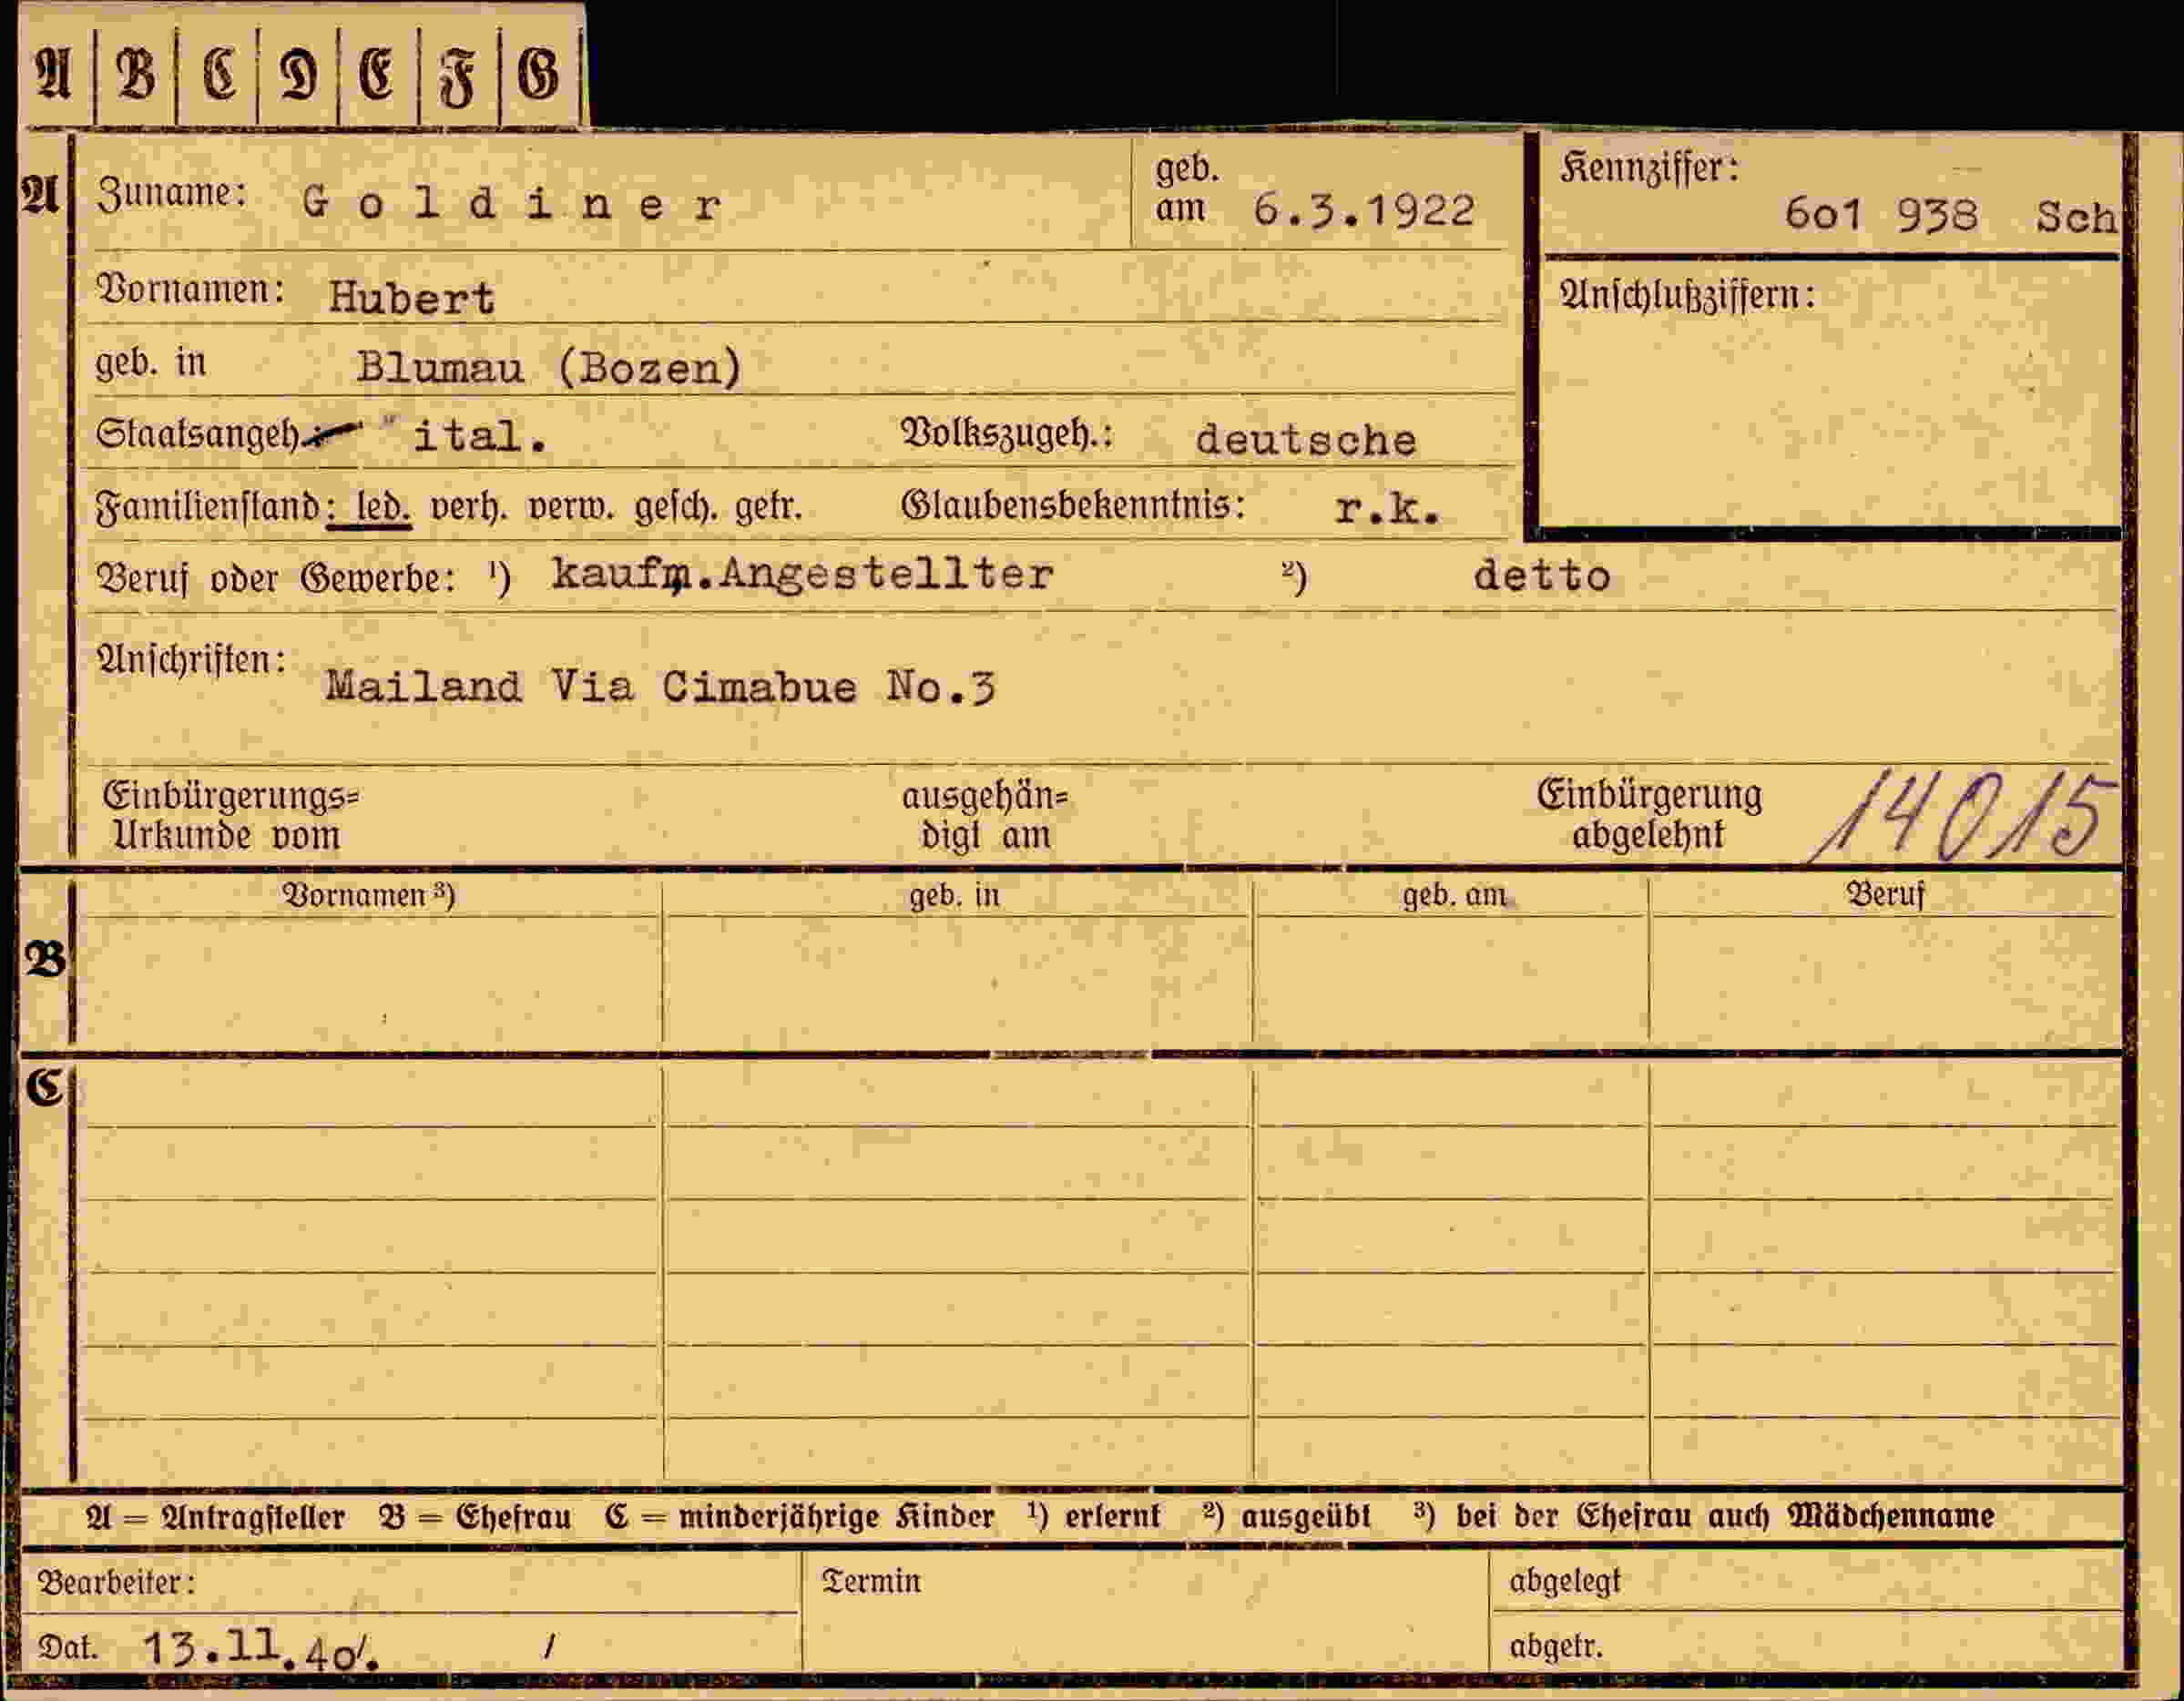 A B C D E F G
A Zuname: Goldiner geb. am 6.3.1922 Kennziffer: 6o1 938 Sch
Vornamen: Hubert Anschlußziffern:
geb. in Blumau (Bozen)
Staatsangeh. ital. Volkszugeh.: deutsche
Familienstand: led. verh. verw. gesch. getr. Glaubensbekenntnis: r.k.
Beruf oder Gewerbe: ¹) kaufm.Angestellter ²) detto
Anschriften: Mailand Via Cimabue No.3
Einbürgerungs= ausgehän= Einbürgerung 14015
Urkunde vom digt am abgelehnt
Vornamen ³) geb. in geb. am Beruf
B
C
A = Antragsteller B = Ehefrau C = minderjährige Kinder ¹) erlernt ²) ausgeübt ³) bei der Ehefrau auch Mädchenname
Bearbeiter: Termin abgelegt
Dat. 13.11.4o/. / abgetr.